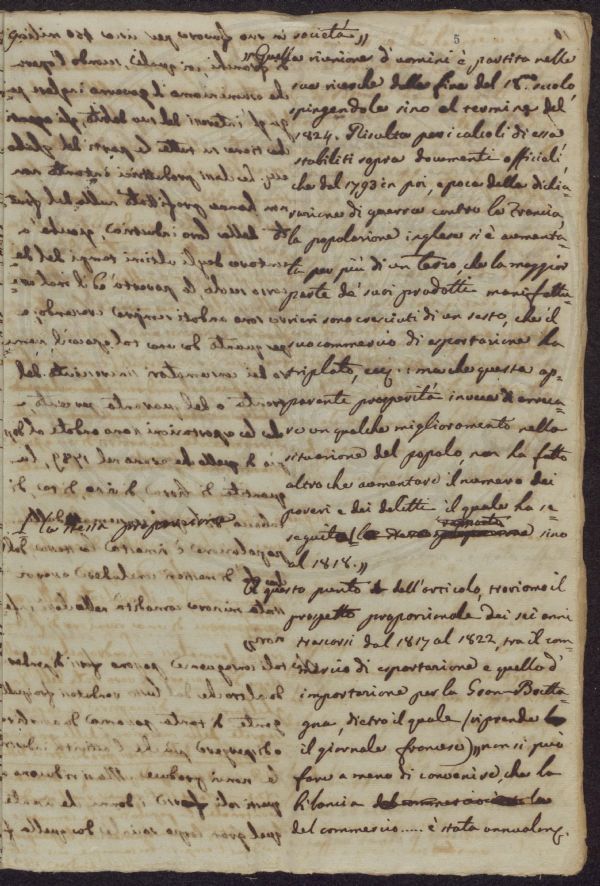 5
società „
„ Quella riunione d'uomini è partita nelle
sue ricerche dalla fine del 18.mo secolo
spingendole sino al termine del
1824. Risulta per i calcoli di essa
stabiliti sopra documenti officiali,
che dal 1793 in poi, epoca della dichia-
razione di guerra contro la Francia,
la popolazione inglese si è aumenta-
ta per più di un terzo, che la maggior
parte da' suoi prodotti manifattu-
rieri sono cresciuti di un sesto, che il
suo commercio di esportazione ha
triplato, ecc.: ma che questa ap-
parente prosperità invece di arreca-
re un qualche miglioramento nella
situazione del popolo, non ha fatto
altro che aumentare il numero dei
poveri e dei delitti il quale ha se-
guito la stessa proporzione sino
la stessa proporzione
al 1818. „
A questo punto dell'articolo, troviamo il
progetto proporzionale dei sei anni
trascorsi dal 1817 al 1822, tra il com-
mercio di esportazione e quello d'
importazione per la Gran-Betta-
gna, dietro il quale (riprende
il giornale francese) „ non si può
fare a meno di convenire, che la
bilancia del commercio
del commercio ..... è stata annualmen.